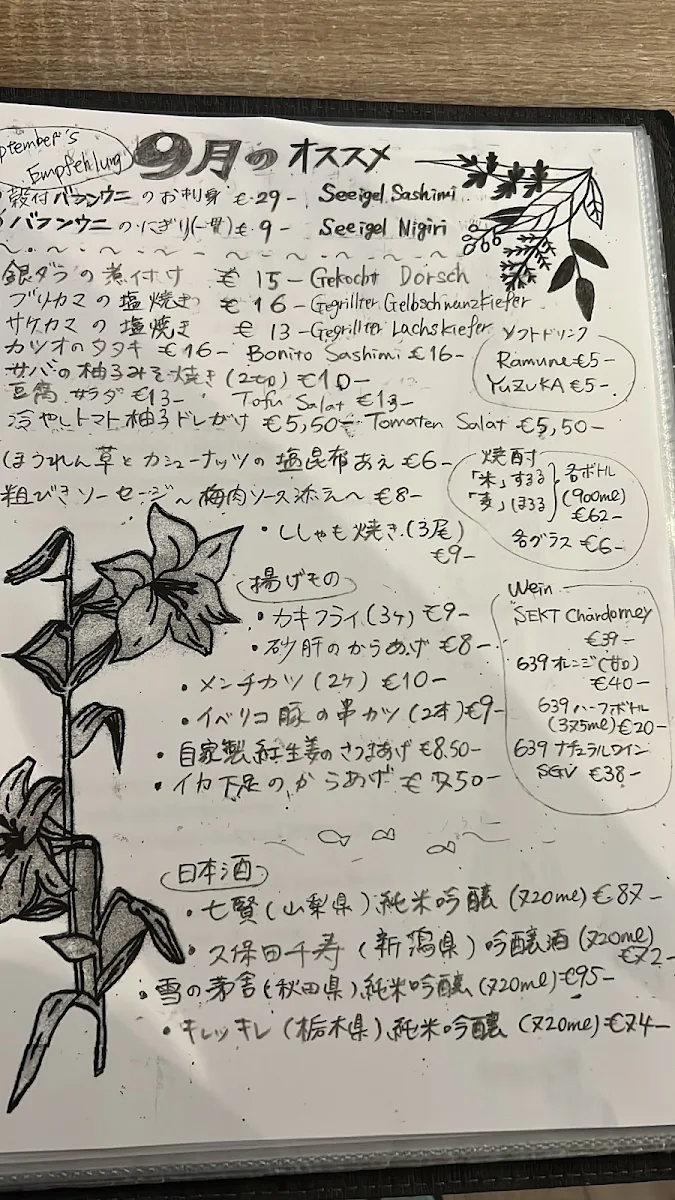 ptember's
Empfehlung
9月のオススメ
殻付バフンウニのお刺身 €29- Seeigel Sashimi
バフンウニのにぎり(一貫) €9- Seeigel Nigiri
銀ダラの煮付け €15- Gekocht Dorsch
ブリカマの塩焼き €16- Gegrillter Gelbschwanzkiefer
サケカマの塩焼き €13- Gegrillter Lachskiefer
カツオのタタキ €16- Bonito Sashimi €16-
サバの柚子みそ焼き(2切) €10-
豆腐サラダ €13- Tofu Salat €13-
冷やしトマト柚子ドレがけ €5,50- Tomaten Salat €5,50-
ほうれん草とカシューナッツの塩昆布あえ €6-
粗びきソーセージ〜梅肉ソース添え〜 €8-
・ししゃも焼き(3尾)
€9-
ソフトドリンク
Ramune €5-
YUZUKA €5-
焼酎
「米」するる
「麦」ほろる
各ボトル
(900ml)
€62-
各グラス €6-
揚げもの
・カキフライ(3ヶ) €9-
・砂肝のからあげ €8-
・メンチカツ(2ヶ) €10-
・イベリコ豚の串カツ(2本) €9-
・自家製紅生姜のさつまあげ €8.50-
・イカ下足のからあげ €7.50-
Wein
SEKT Chardorney
€39-
639オレンジ(甘口)
€40-
639ハーフボトル
(375ml) €20-
639ナチュラルワイン
SGV €38-
日本酒
・七賢(山梨県)純米吟醸(720ml) €87-
・久保田千寿(新潟県)吟醸酒(720ml)
€72-
・雪の茅舎(秋田県)純米吟醸(720ml) €95-
・キレッキレ(栃木県)純米吟醸(720ml) €74-